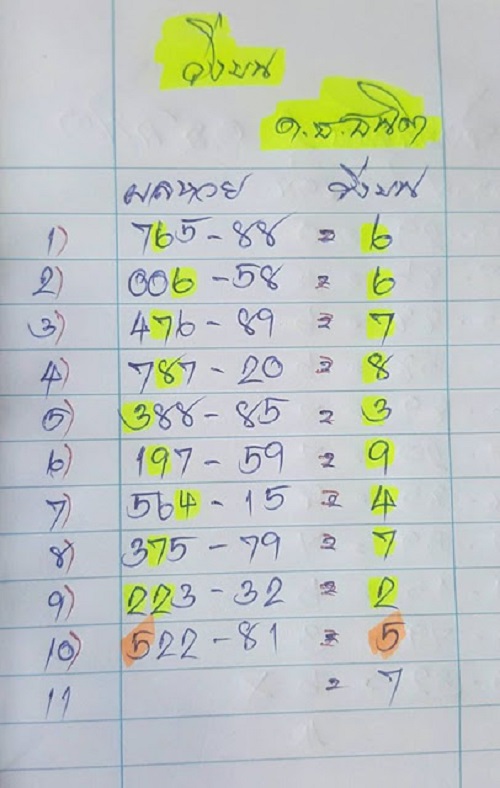 วิ่งบน
อ.ธ.ธนิดา
ผลหวย วิ่งบน
1) 765 - 88 = 6
2) 006 - 58 = 6
3) 476 - 89 = 7
4) 787 - 20 = 8
5) 388 - 85 = 3
6) 197 - 59 = 9
7) 564 - 15 = 4
8) 375 - 79 = 7
9) 223 - 32 = 2
10) 522 - 81 = 5
11 = 7